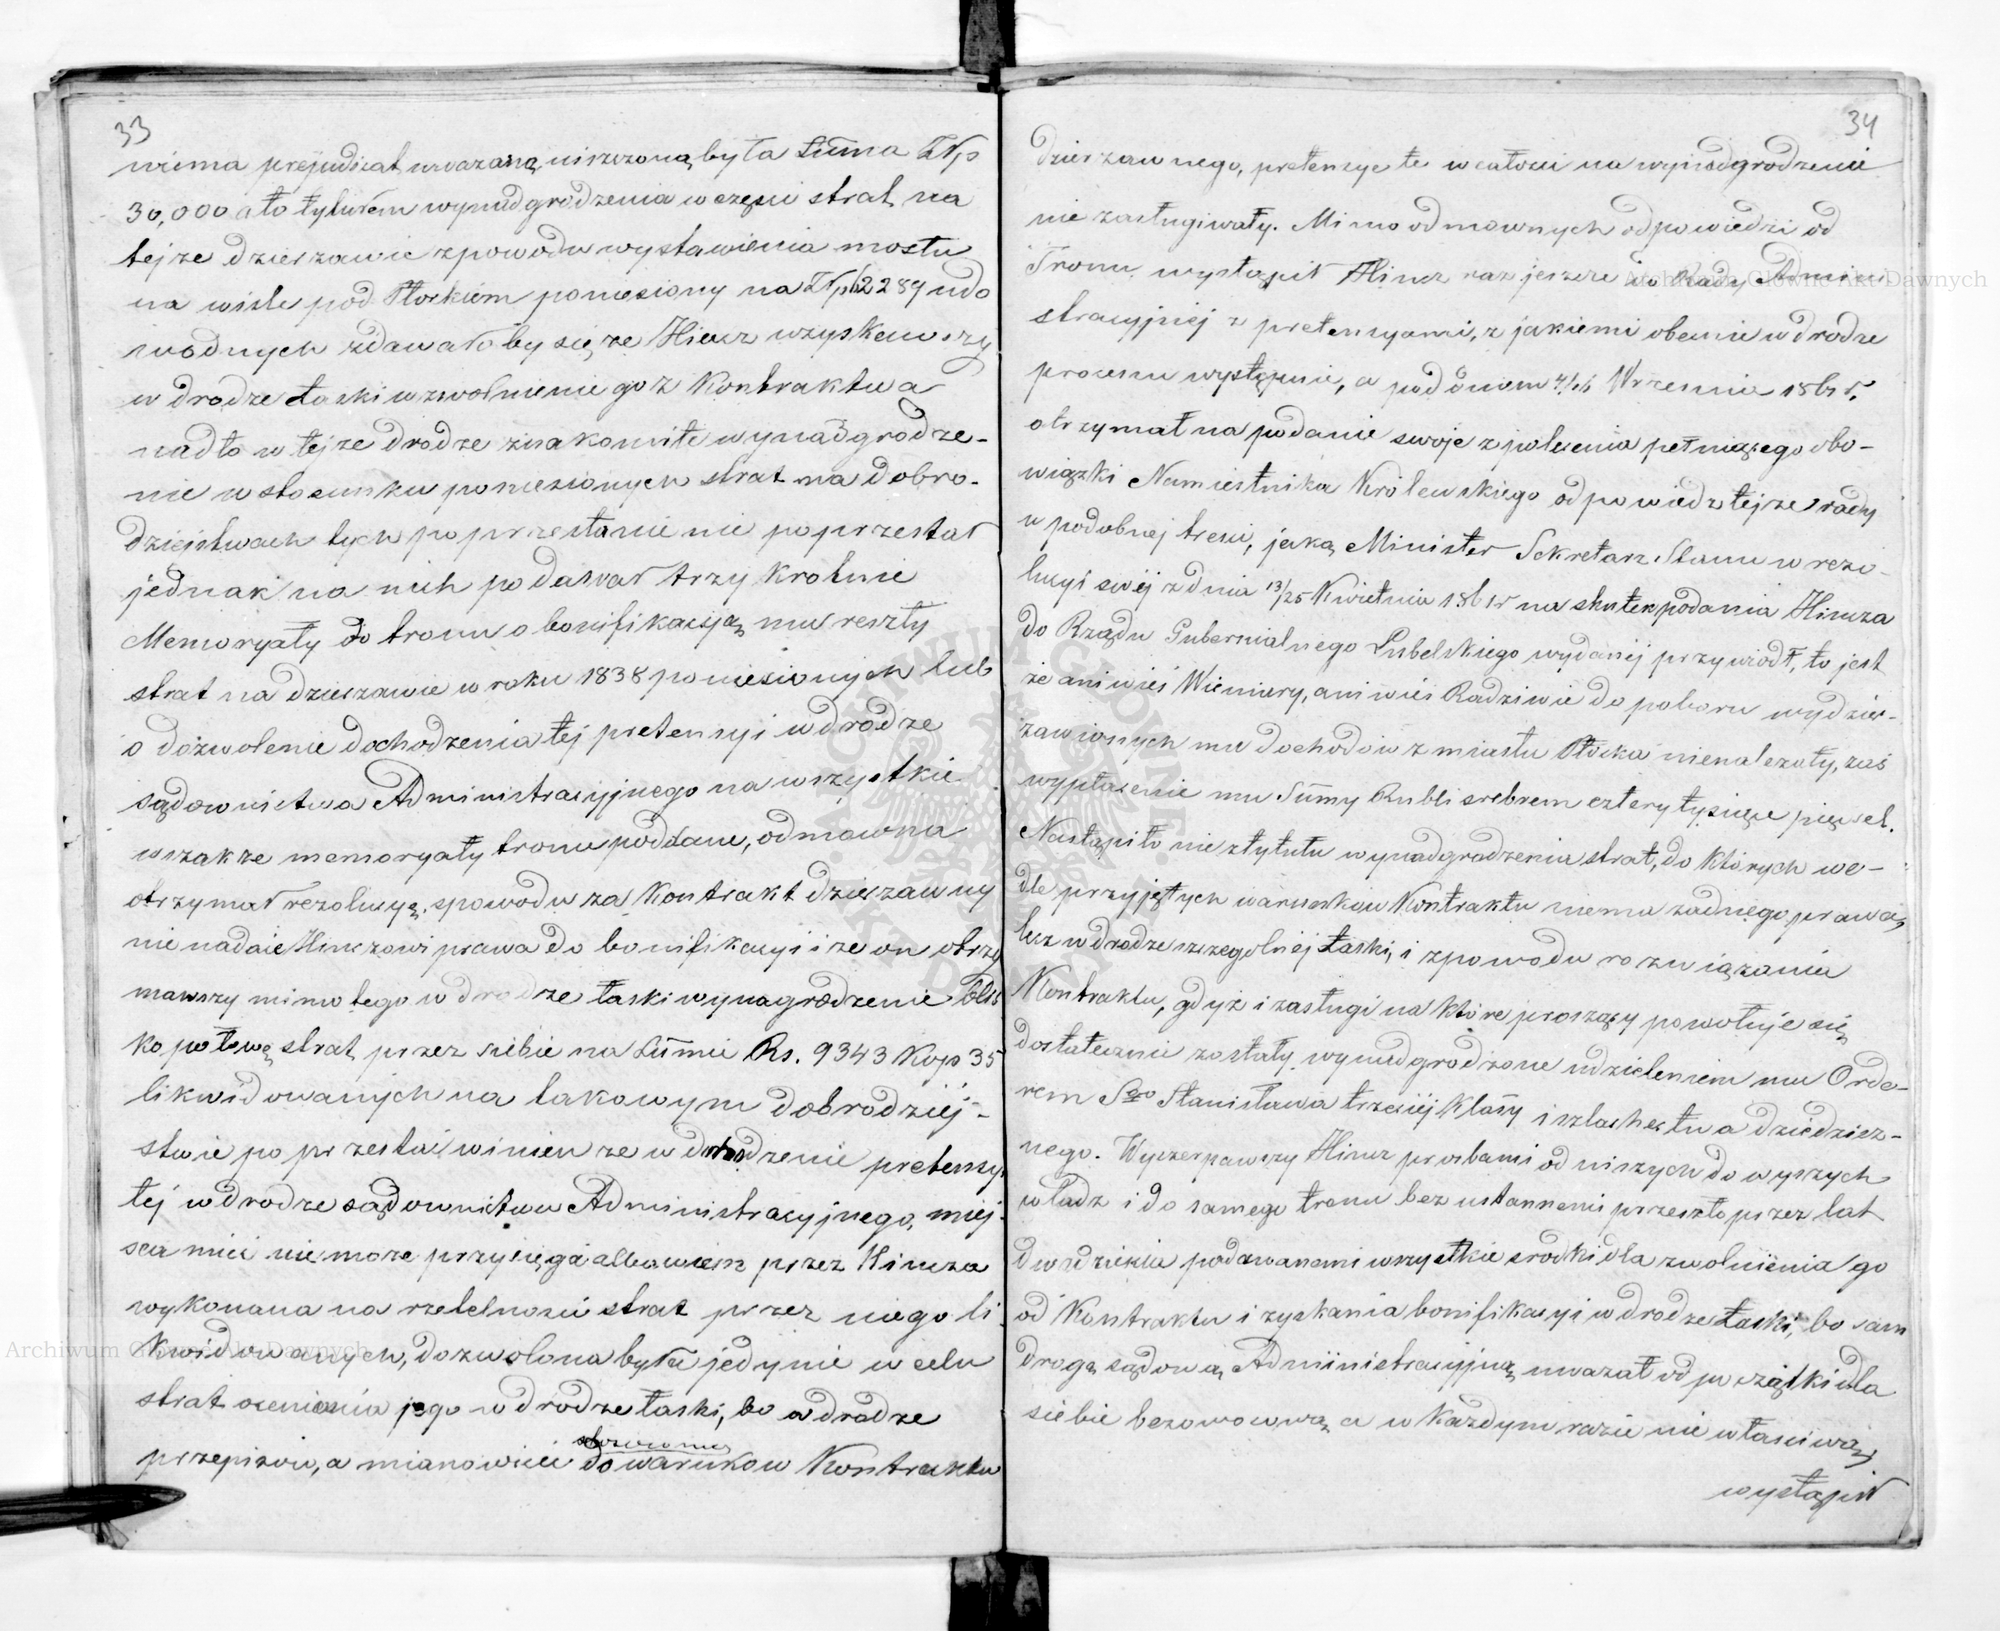 33
winna prejudicat uwazaną niszczoną była Summa Złp
30,000 a to tytułem wynadgrodzenia w części strat na
tejze dzierzawie zpowodu wystawienia mostu
na wisle pod Płockiem poniesiony na Złp 62289 udo
wodnych zdawałoby się ze Hincz wzyskawszy
w drodze Łaski uzwolnienie go z Kontraktu a
nadto w tejze drodze znakomite wynadgrodze-
nie w stosunku poniesionych strat na dobro-
dziejstwach tych poprzestanie nie poprzestał
jednak na nich podawał trzykrotnie
Memoryały do tronu o bonifikacją mu reszty
strat na dzierzawie w roku 1838 poniesionych lub
o dozwolenie dochodzenia tej pretensyi w drodze
sądownictwa Administracyjnego na wszystkie
wszakze memoryały tronu poddane, odmowna
otrzymał rezolucyą, spowodu za Kontrakt dzierzawny
nie nadaie Hinczowi prawa do bonifikacyi i ze on otrzy
mawszy mimo tego w drodze łaski wynagrodzenie blis
ko połowę strat przez siebie na Summie Rs. 9343 Kop 35
likwidowanych na takowym dobrodziej-
stwie poprzestać winien ze w dochodzenie pretensyi
tej w drodze sądownictwa Administracyjnego, miej-
sca mieć nie moze przysięga albowiem przez Hincza
wykonana na rzetelnosci strat przez niego li
kwidowanych, dozwolona była jedynie w celu
strat ocenienia jego w drodze łaski, bo w drodze
przepisów, a mianowicie stosownie
do warunkow Kontraktu
34
dzierzawnego, pretensye te w całości na wynadgrodzenie
nie zasługiwały. Mimo odmownych odpowiedzi od
Tronu wystąpił Hincz raz jeszcze do Rady Admini
stracyjnej z pretensyami, z jakiemi obecnie w drodze
procesu występuie, a pod dniem 4/16 Wrzesnia 1861 r.
otrzymał na podanie swoje z polecenia pełniącego obo-
wiązki Namiestnika Królewskiego odpowiedz tejze rady
w podobnej tresci, jaką Minister Sekretarz Stanu w rezo-
lucyi swéj z dnia 13/25 Kwietnia 1861 r na skutek podania Hincza
do Rządu Gubernialnego Lubelskiego wydanéj przywiódł, to jest
że ani wieś Winiary, ani wieś Radziwie do poboru wydzier-
zawionych mu dochodów z miasta Płocka nienalezały, zaś
wypłacenie mu Summy Rubli srebrem cztery tysiące pięcset.
Nastąpiło nie z tytułu wynadgradzenia strat, do których we-
dle przyjętych warunkow Kontraktu niema zadnego prawa,
lecz w drodze szczególnéj Łaski, i zpowodu rozwiązania
Kontraktu, gdyż i zasługi na które proszący powołuje się
dostatecznie zostały wynadgrodzone udzieleniem mu Orde-
rem Sgo Stanisława trzeciéj Klassy i szlachectwa dziedzicz-
nego. Wyczerpawszy Hincz prosbami od niszych do wyszych
władz i do samego tronu bez ustannemi przeszło przez lat
dwadziescia podawanemi wszystkie srodki dla zwolnienia go
od Kontraktu i zyskania bonifikacyi w drodze Łaski, bo sam
drogę sądową Administracyjną uwazał od początki dla
siebie bezowocową a w Kazdym razie nie własciwą,
wystąpił
Archiwum Główne Akt Dawnych
Archiwum Główne Akt Dawnych